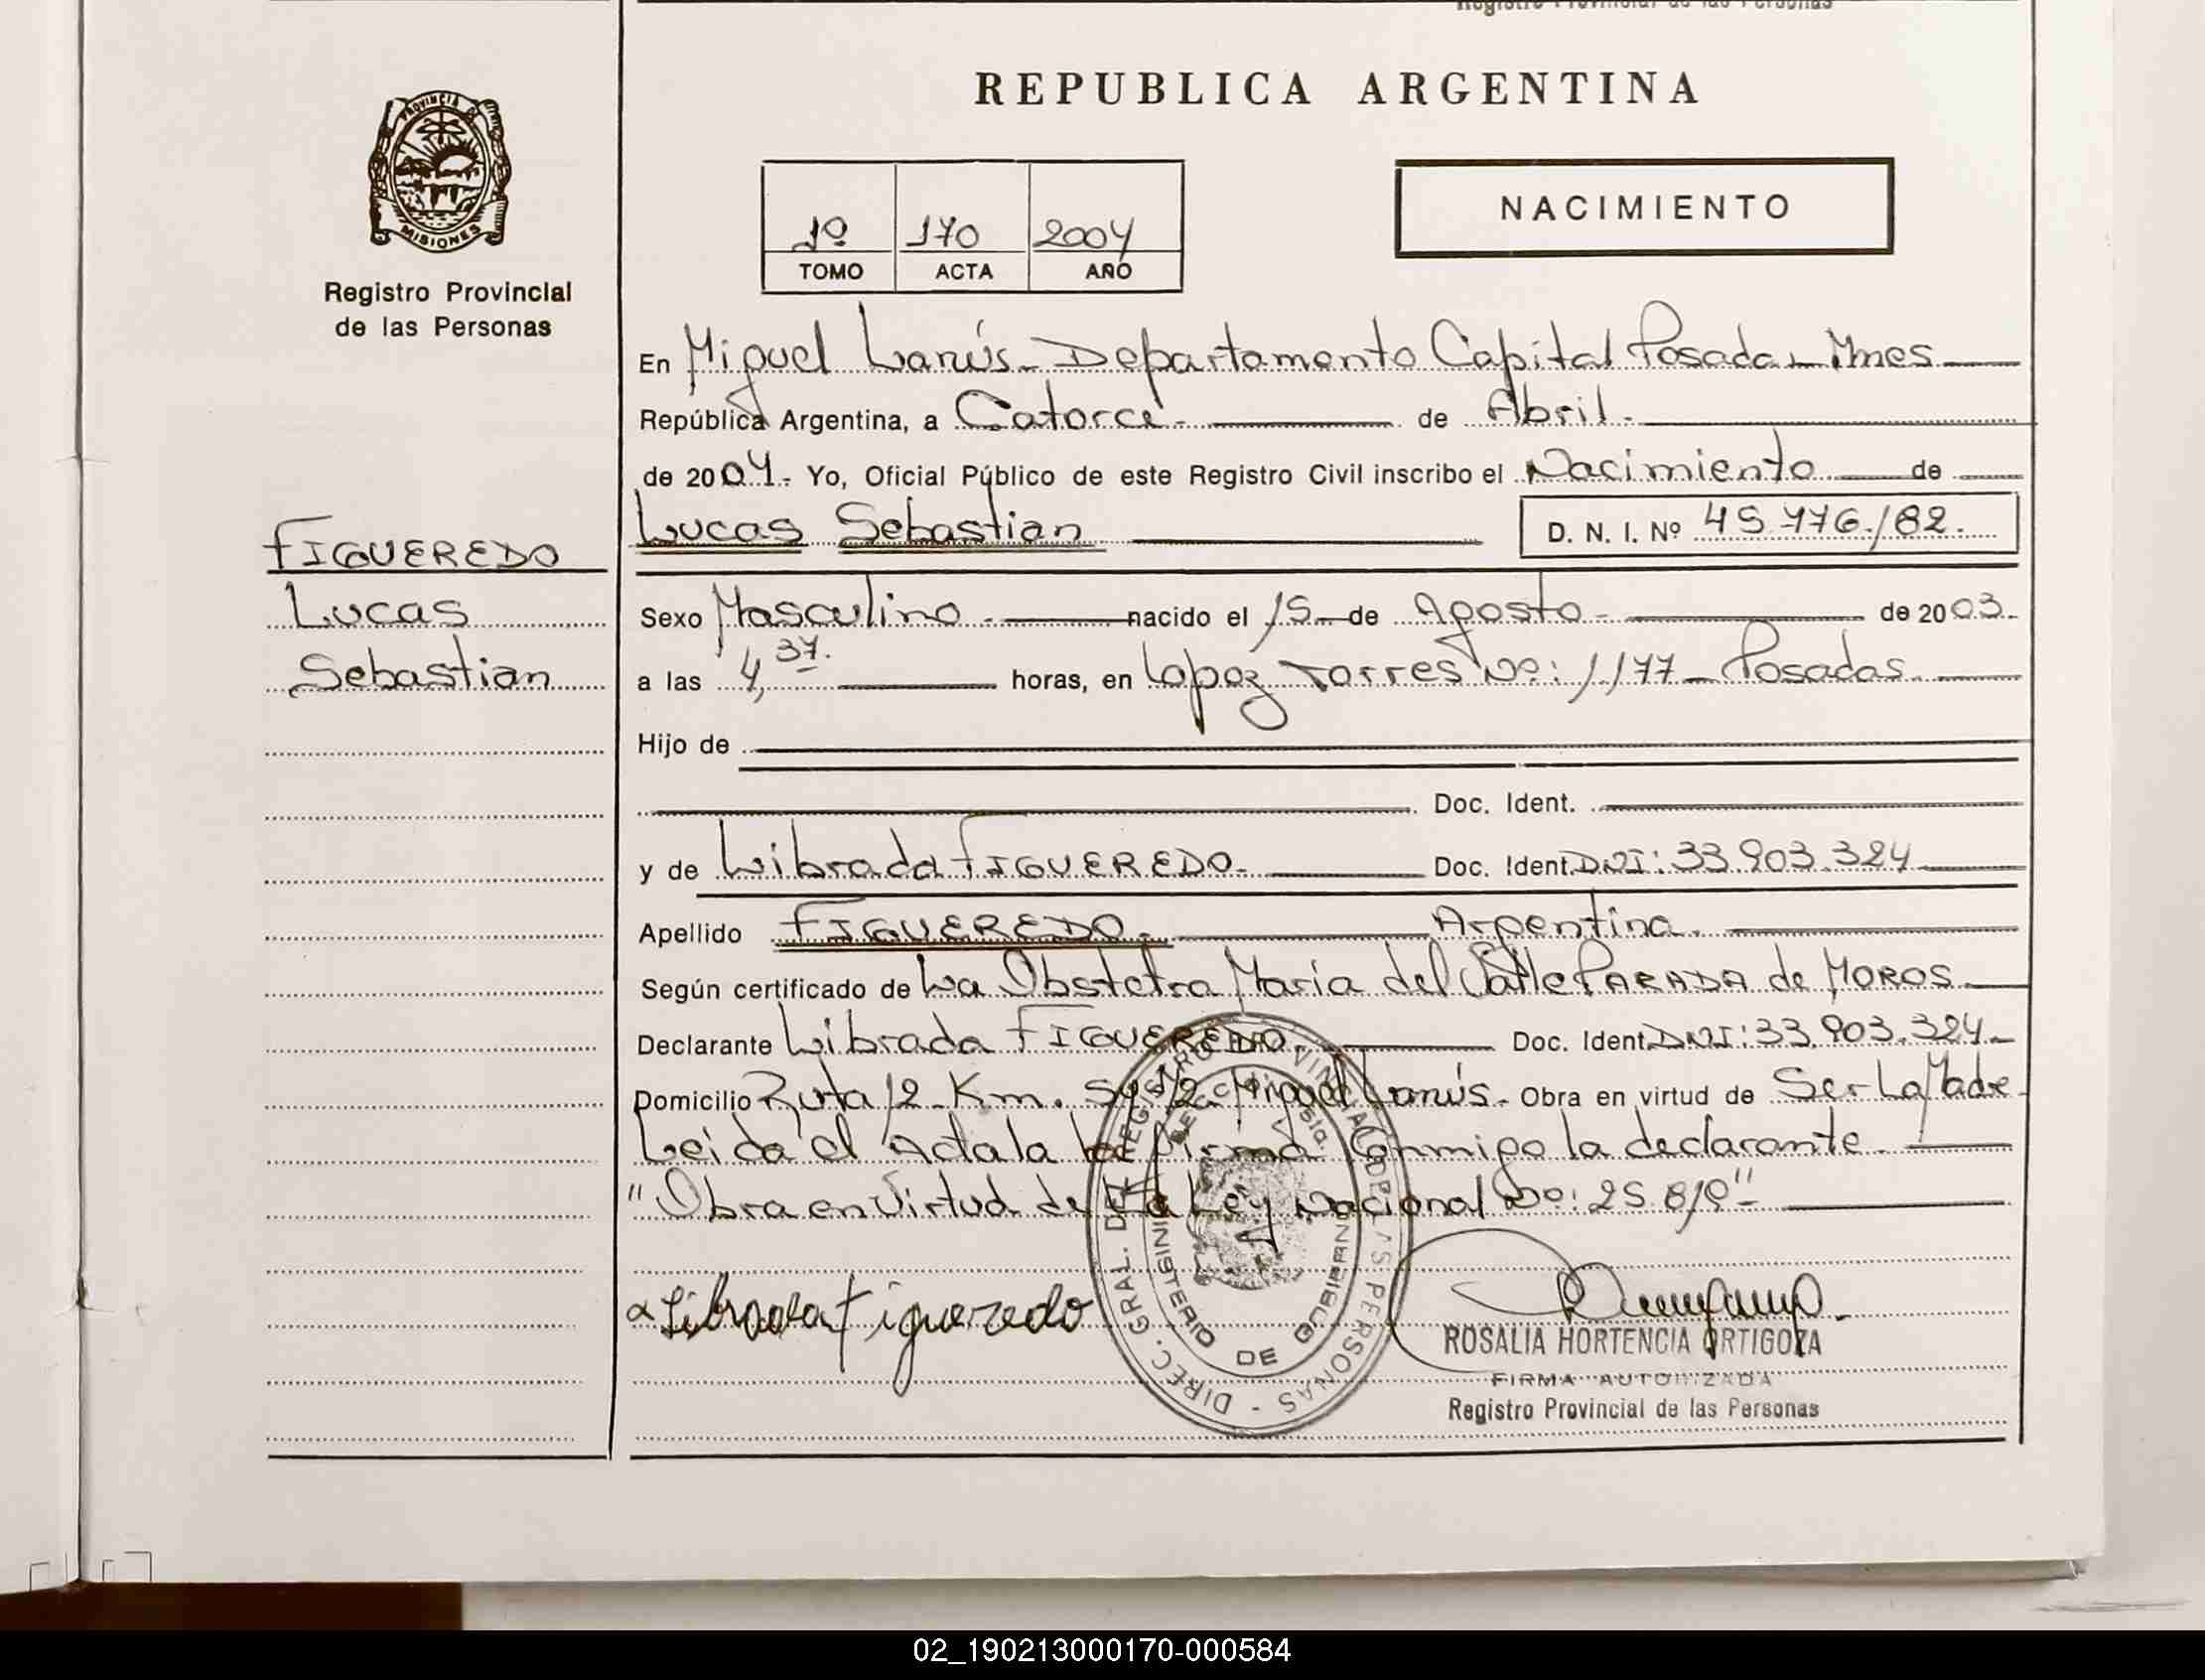 REPUBLICA ARGENTINA
PROVINCIA DE
MISIONES
Registro Provincial
de las Personas
1º 170 2004
TOMO ACTA AÑO
NACIMIENTO
En Miguel Lanús - Departamento Capital Posadas Mnes
República Argentina, a Catorce - de Abril.
de 2004. Yo, Oficial Público de este Registro Civil inscribo el Nacimiento de
Lucas Sebastian
D. N. I. Nº 45.776.182.
FIGUEREDO
Lucas
Sebastian
Sexo Masculino. nacido el 15 de Agosto - de 2003.
a las 4,37. horas, en Lopez Torres Nº: 1177 - Posadas.
Hijo de
Doc. Ident.
y de Librada FIGUEREDO. Doc. Ident. DNI: 33.903.324
Apellido FIGUEREDO. Argentina.
Según certificado de La Obstetra María del Valle PARADA de MOROS
Declarante Librada FIGUEREDO. Doc. Ident. DNI: 33.903.324
Domicilio Ruta 12 - Km. 1/2 Miguel Lanús. Obra en virtud de Ser La Madre.
Leida el Acta la firma Conmigo la declarante.
"Obra en Virtud de La Ley Nacional Nº: 25.819"
Librada Figueredo
DIREC. GRAL. DEL REGISTRO PROVINCIAL DE LAS PERSONAS
MINISTERIO DE GOBIERNO
ROSALIA HORTENCIA ORTIGOZA
FIRMA AUTORIZADA
Registro Provincial de las Personas
02_190213000170-000584